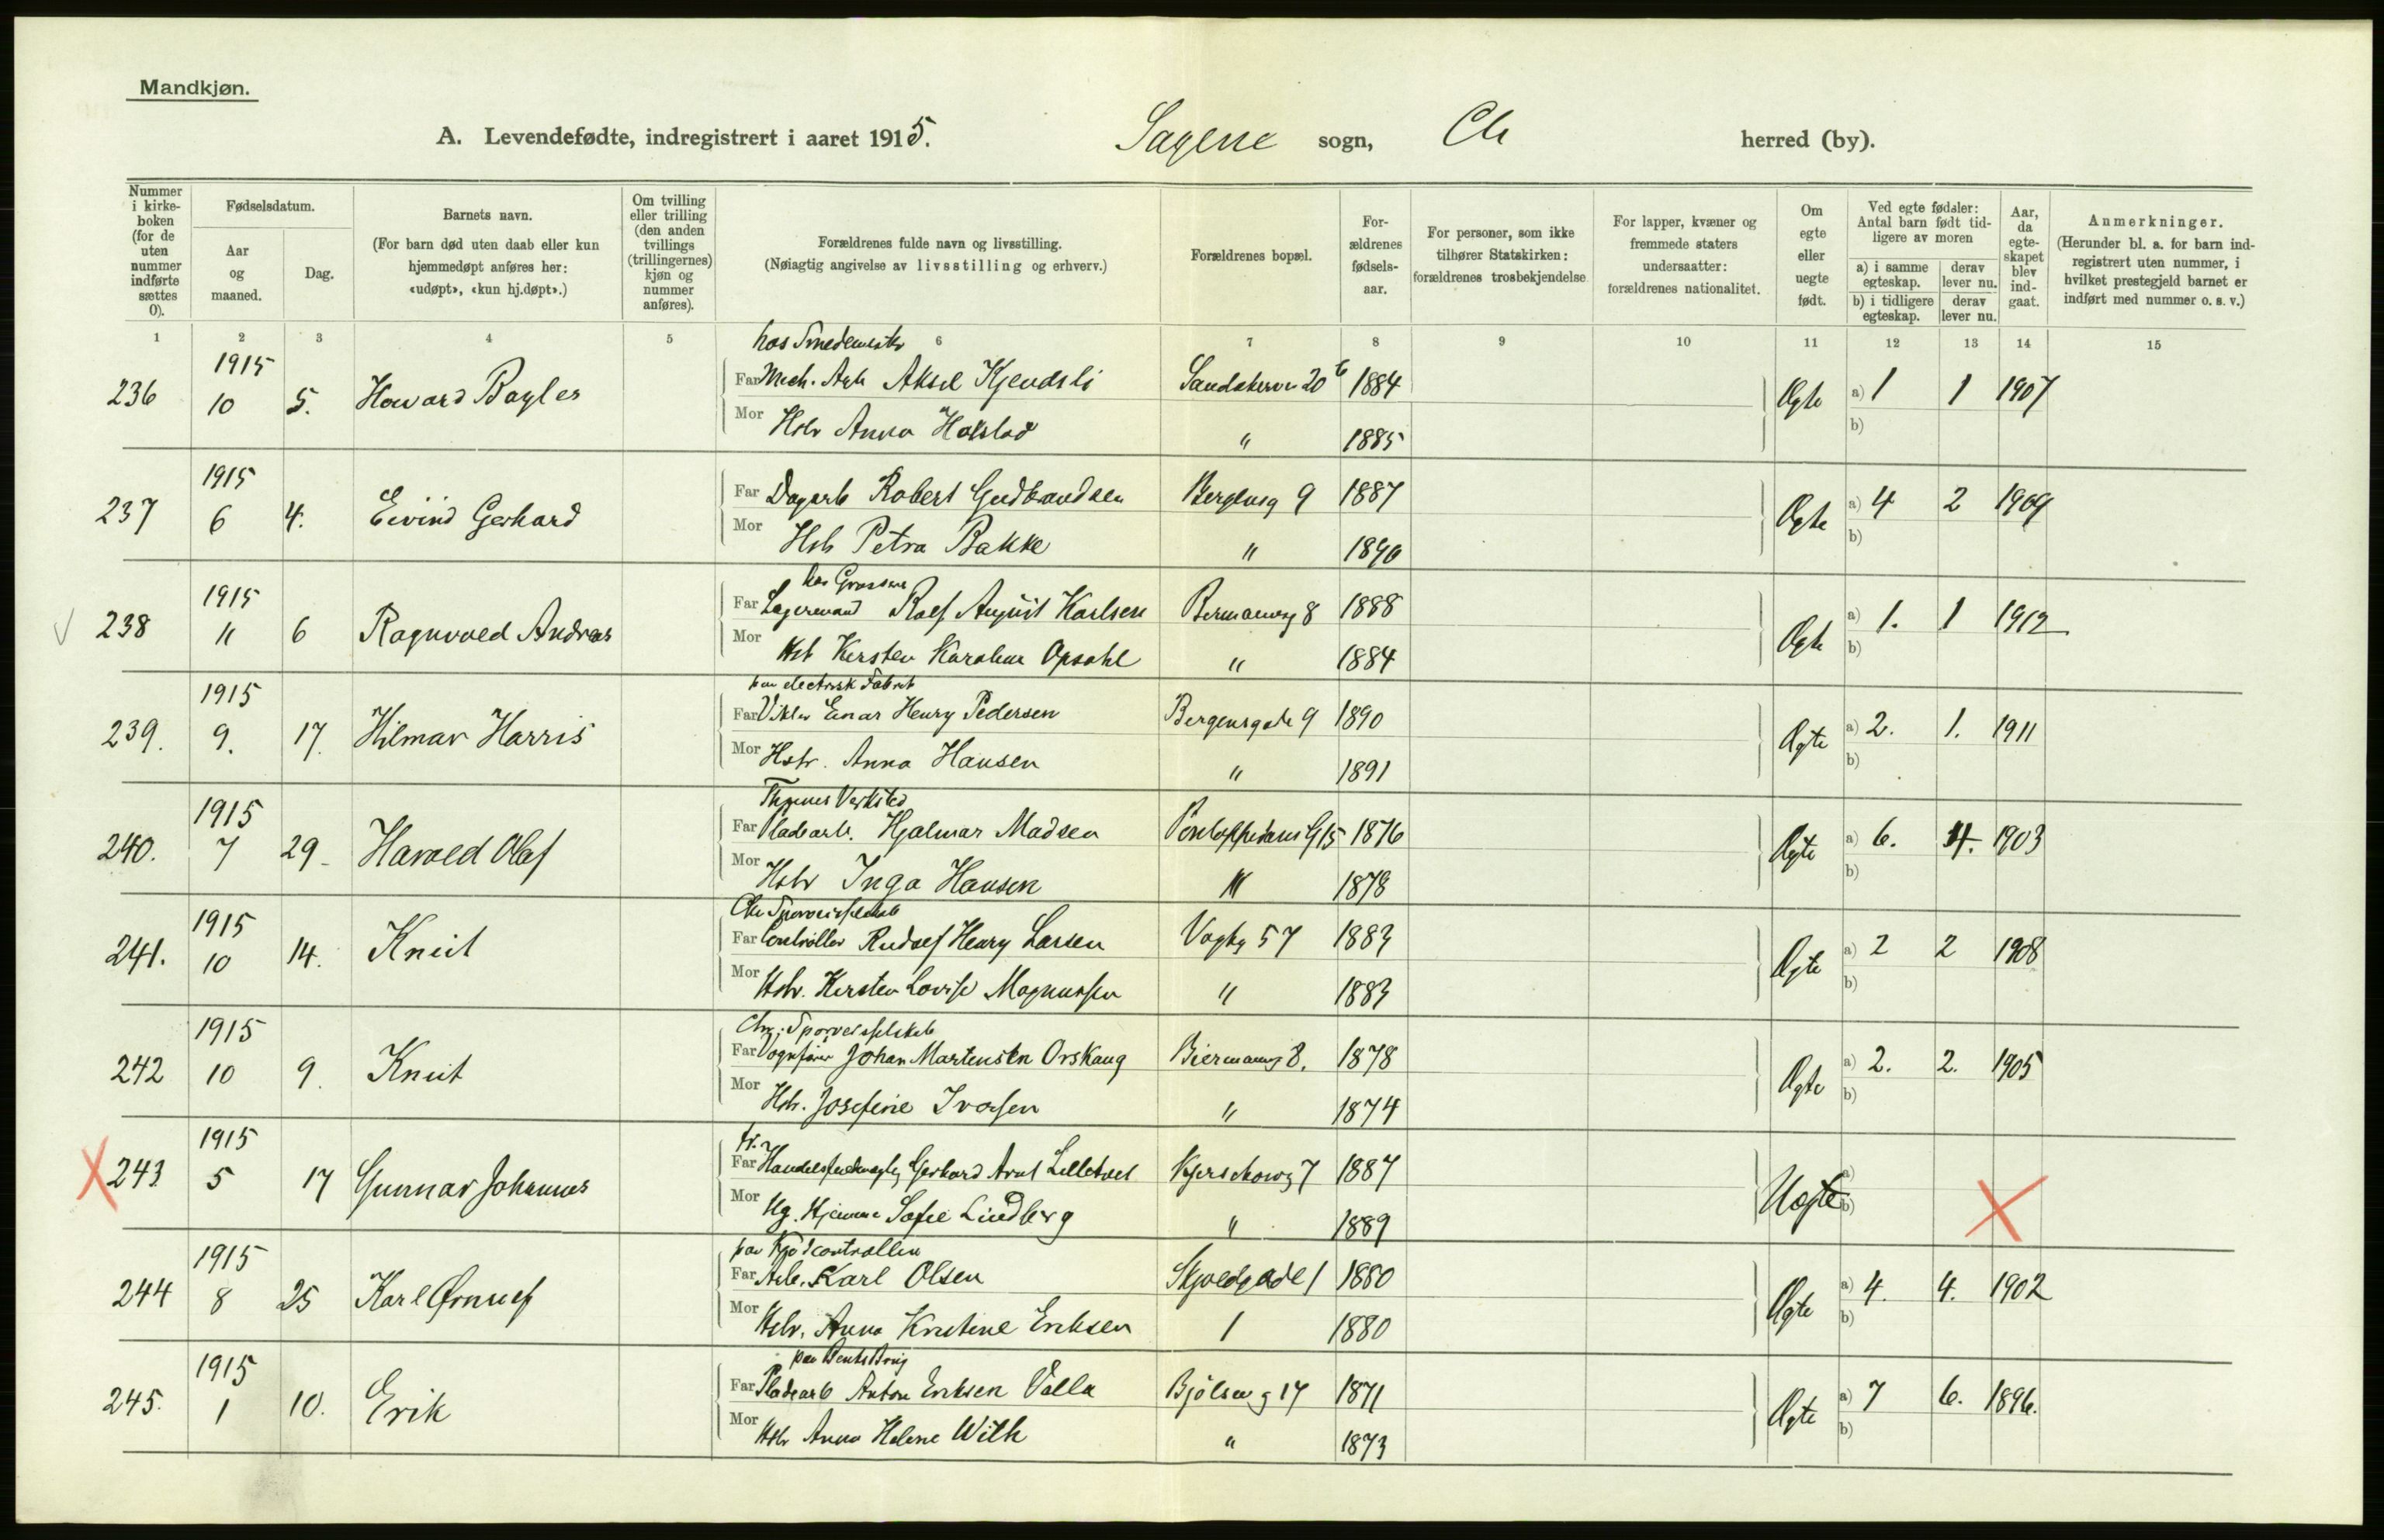 Mandkjøn.
A. Levendefødte, indregistrert i aaret 1915. Sagene sogn, Chr herred (by).
Nummer i kirkeboken (for de uten nummer indførte sættes 0).
Fødselsdatum.
Aar og maaned.
Dag.
Barnets navn.
(For barn død uten daab eller kun hjemmedøpt anføres her: «udøpt», «kun hj.døpt».)
Om tvilling eller trilling (den anden tvillings (trillingernes) kjøn og nummer anføres).
Forældrenes fulde navn og livsstilling.
(Nøiagtig angivelse av livsstilling og erhverv.)
Forældrenes bopæl.
Forældrenes fødselsaar.
For personer, som ikke tilhører Statskirken: forældrenes trosbekjendelse
For lapper, kvæner og fremmede staters undersaatter: forældrenes nationalitet.
Om egte eller uegte født.
Ved egte fødsler: Antal barn født tidligere av moren
a) i samme egteskap.
derav lever nu.
b) i tidligere egteskap.
derav lever nu.
Aar, da egteskapet blev indgaat.
Anmerkninger.
(Herunder bl. a. for barn indregistrert uten nummer, i hvilket prestegjeld barnet er indført med nummer o. s. v.)
1 2 3 4 5 6 7 8 9 10 11 12 13 14 15
hos Smedemestr
1915
236 10 5. Howard Bagler Far Mech. Arb Aksel Kjendsli 20 b 1884 Ægte a) 1 1 1907
Mor Hstr Anna Halstad " 1885 b)
1915
237 6 4. Eivind Gerhard Far Dagarb Robert Gudbrandsen Bergensg 9 1887 Ægte a) 4 2 1909
Mor Hstr Petra Bakke " 1890 b)
1915
238 11 6 Ragnvald Andreas Far Lagermand Rolf August Karlsen 8 1888 Ægte a) 1. 1 1912
Mor Hst Kirsten Karoline Opsahl " 1884 b)
paa electrisk Fabrik
1915
239. 9. 17. Hilmar Harris Far Vikler Einar Henry Pedersen Bergensgade 9 1890 Ægte a) 2. 1. 1911
Mor Hstr. Anna Hansen " 1891 b)
Thunes Verksted
1915
240. 7 29 Harald Olaf Far Pladearb. Hjalmar Madsen 15 1876 Ægte a) 6. 4. 1903
Mor Hstr Inga Hansen " 1878 b)
Chr Sporveisselskab
1915
241. 10 14. Knut Far Controllør Rudolf Henry Larsen Vogtsg 57 1883 Ægte a) 2 2 1908
Mor Hstr. Kirsten Lovise Magnussen " 1883 b)
Chr. Sporveisselskab
1915
242 10 9. Knut Far Vognfører Johan Martensen Orskaug Biermannsg 8. 1878 Ægte a) 2. 2. 1905
Mor Hstr. Josefine Ivarsen " 1874 b)
fr.
1915
243. 5 17 Gunnar Johannes Far Gerhard Arnt 7 1887 Uægte a)
Mor Ug. Sofie Lindberg " 1889 b)
paa Kjødcontrollen
1915
244 8 25 Karl Ørnulf Far Arb. Karl Olsen Skjoldgade 1 1880 Ægte a) 4. 4. 1902
Mor Hstr. Anna Kristine Eriksen 1 1880 b)
1915
245. 1 10. Erik Far Pladearb Anton Eriksen Valla Bjølseng 17 1871 Ægte a) 7 6. 1896.
Mor Hstr Anna Helene With " 1873 b)